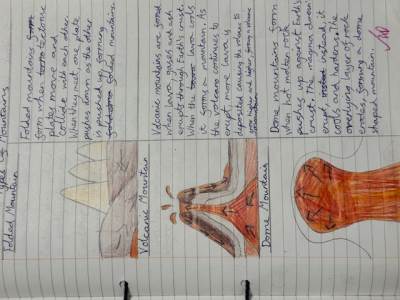 Types of Mountains
Folded Mountain
Folded mountains
form when two tectonic
plates move and
collide with each other.
When they meet, one plate
passes down as the other
is pushed up forming
folded mountains.
Volcanic Mountain
Volcanic mountains are formed
when lava, gases are ash
erupts through Earth's crust.
When the lava cools
it forms a mountain. As
the volcano continues to
erupt more lava is
deposited causing the volcano to
grow higher and higher forming a
Dome Mountain
Dome mountains form
when hot molten rock
pushes up against Earth's
crust. The magma doesn't
erupt instead it
cools and hardens. The
overlying layer of rock
erodes, forming a dome
shaped mountain.